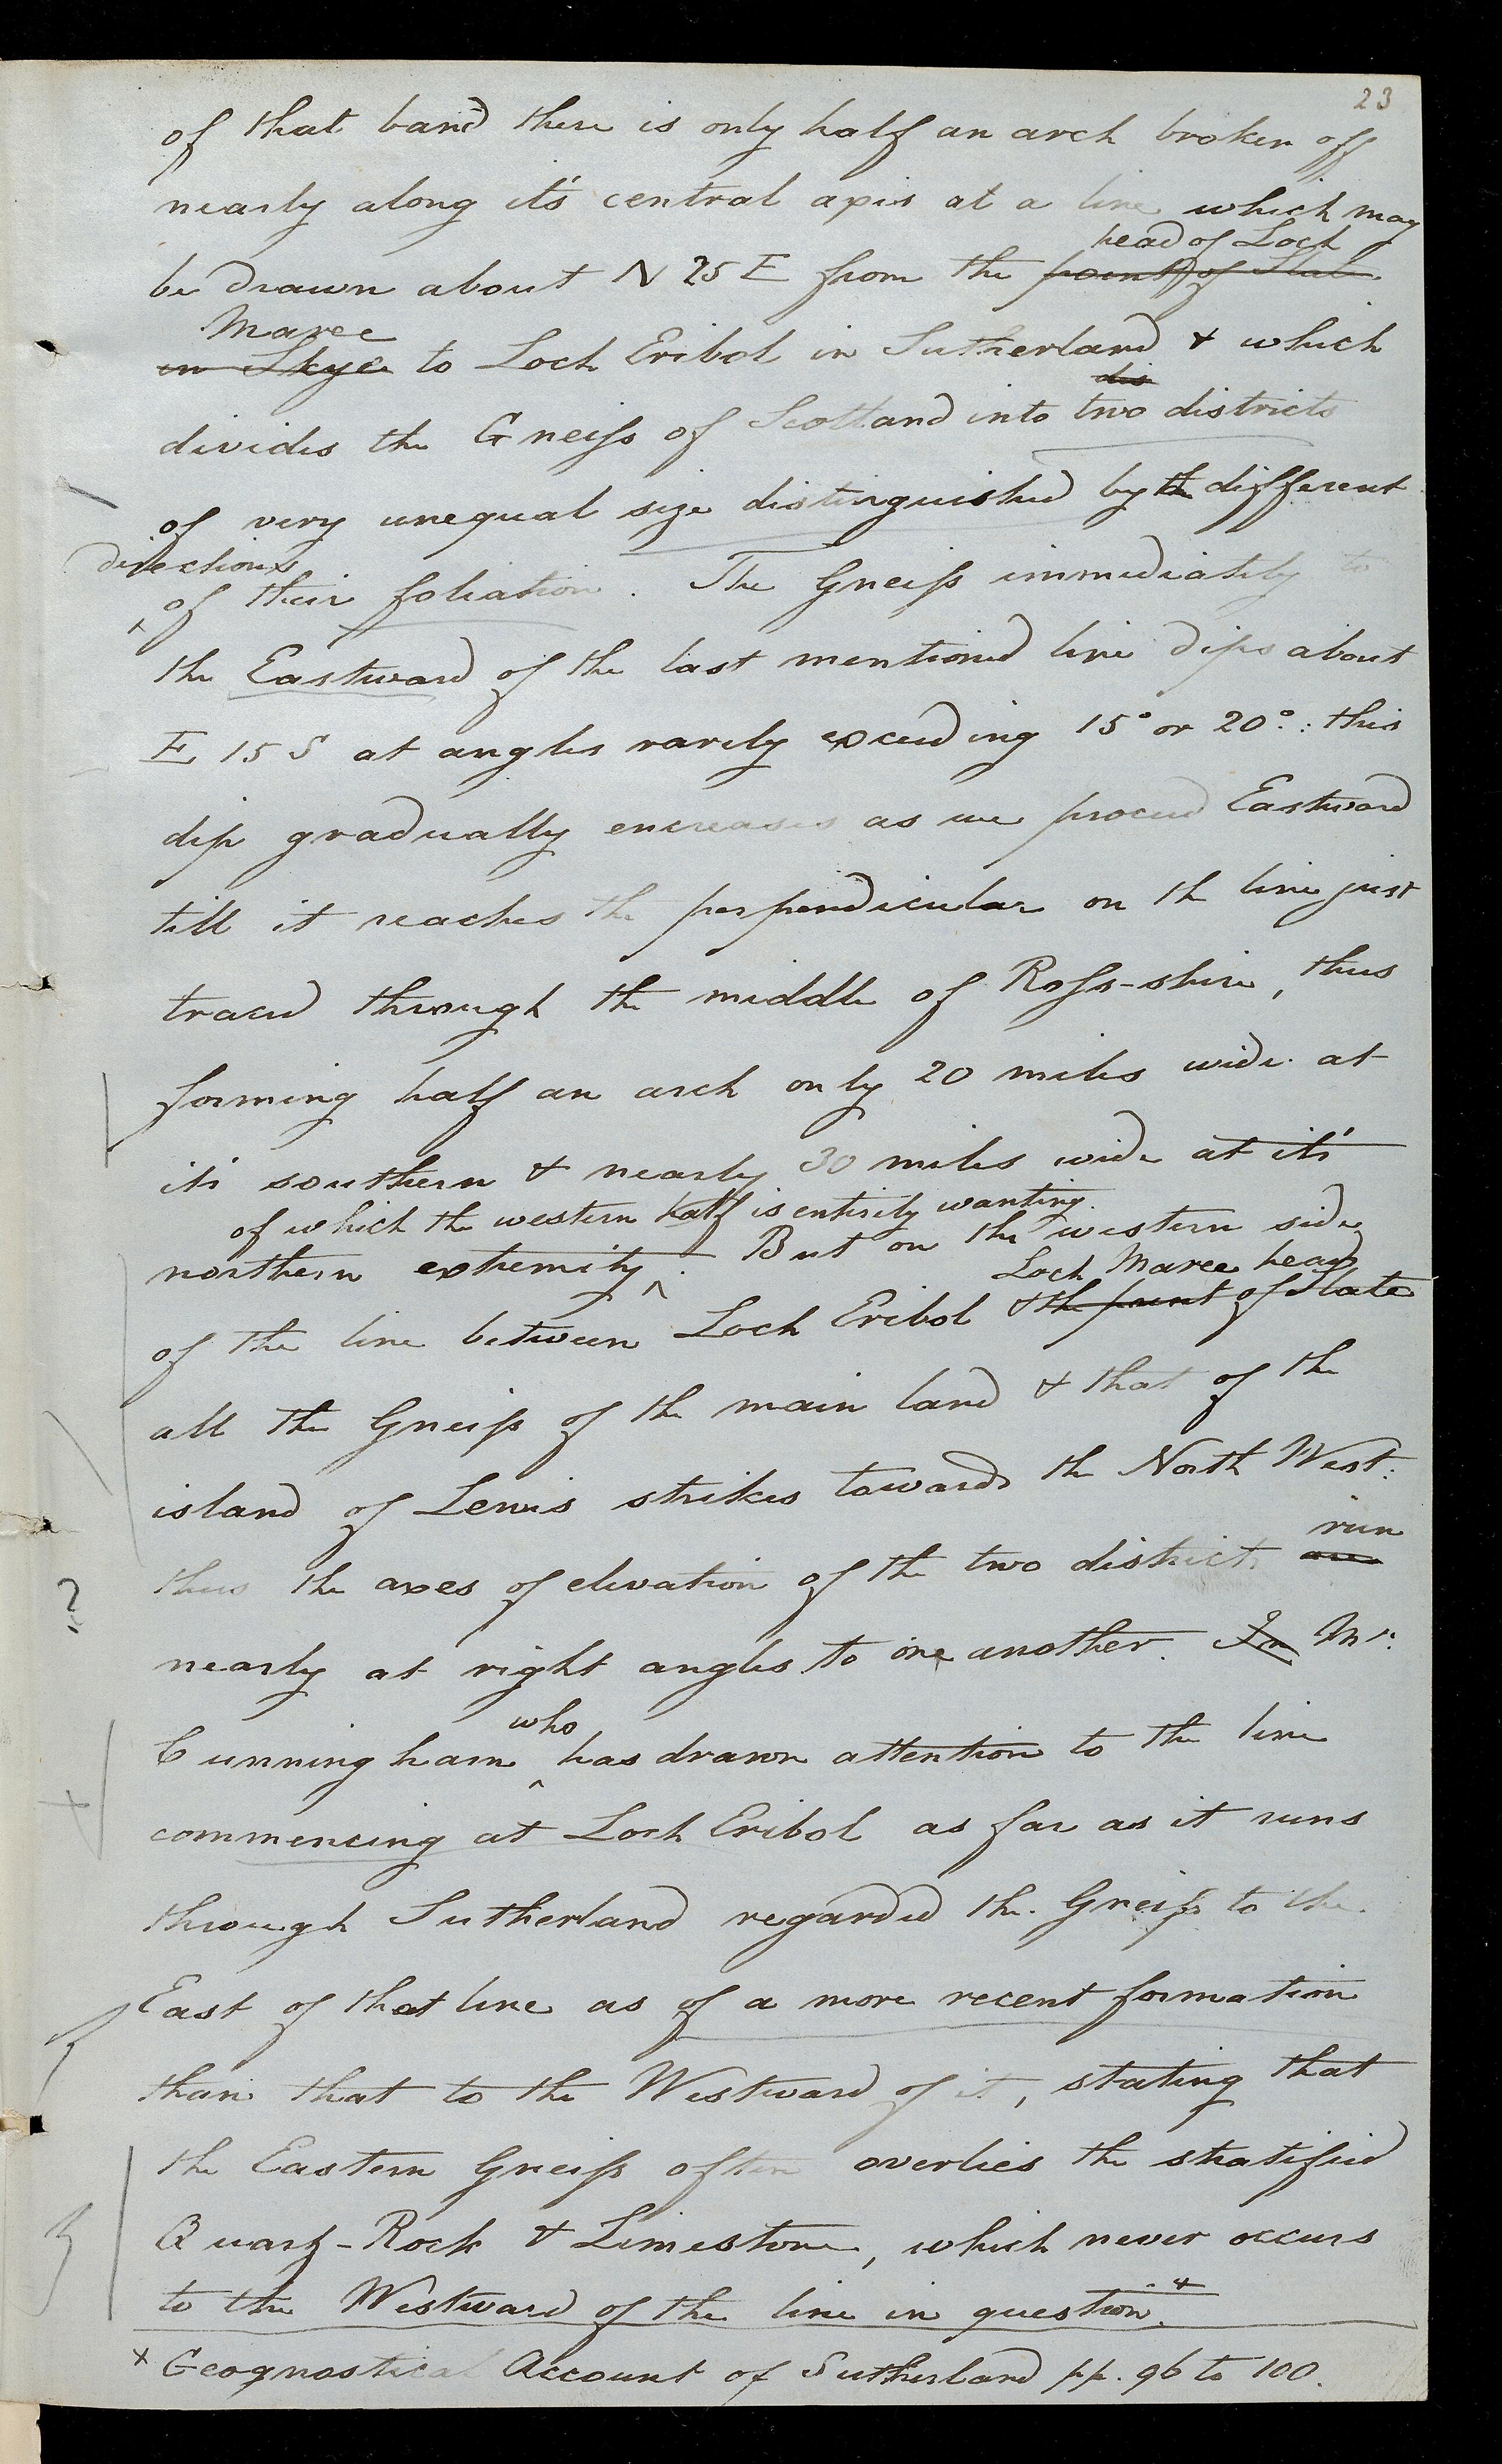 23
of that band there is only half an arch broken off
nearly along it's central axis at a line which may
head of Loch
be drawn about N 25 E from the point of Slate
Maree
in Skye to Loch Eribol in Sutherland & which
dis
divides the Gneiss of Scotland into two districts
of very unequal size distinguished by th different
directions
of their foliation. The Gneiss immediately to
the Eastward of the last mentioned line dips about
E 15 S at angles rarely exceeding 15° or 20°: this
dip gradually encreases as we proceed Eastward
till it reaches the perpendicular on the line just
traced through the middle of Ross-shire, thus
forming half an arch only 20 miles wide at
it's southern & nearly 30 miles wide at it's
of which the western half is entirely wanting.
northern extremity. But on the western side
Loch Maree head
of the line between Loch Eribol & the point of Slate
all the Gneiss of the main land & that of the
island of Lewis strikes towards the North West:
run
thus the axes of elevation of the two districts are
nearly at right angles to one another. In Mr.
who
Cunningham has drawn attention to the line
commencing at Loch Eribol as far as it runs
through Sutherland regarded the Gneiss to the
East of that line as of a more recent formation
than that to the Westward of it, stating that
the Eastern Gneiss often overlies the stratified
Quartz-Rock & Limestone, which never occurs
to the Westward of the line in question.x
x Geognostical Account of Sutherland pp. 96 to 100.
?